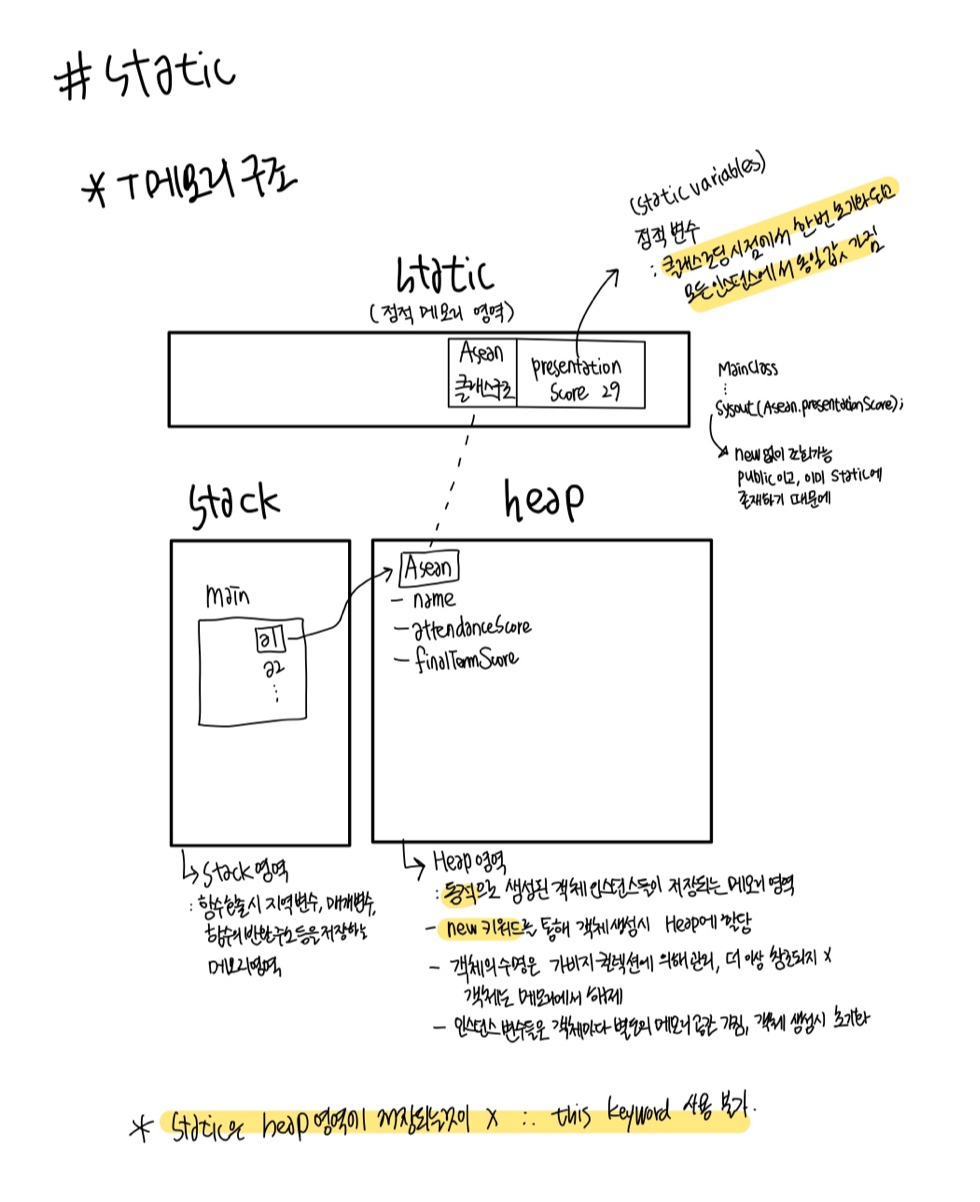 # static
* T 메모리 구조
(static variables)
정적 변수
: 클래스로딩 시점에서 한번 초기화 되고
모든 인스턴스에서 동일값 가짐
static
(정적 메모리 영역)
Asean
클래스구조
presentation
Score 29
MainClass
⋮
Sysout(Asean.presentationScore);
new 없이 조회가능
public이고, 이미 static에
존재하기 때문에
stack
heap
main
a1
a2
⋮
Asean
- name
- attendanceScore
- finalTermScore
Stack 영역
: 함수호출시 지역변수, 매개변수,
함수의 반환주소등을 저장하는
메모리영역
Heap 영역
: 동적으로 생성된 객체 인스턴스들이 저장되는 메모리 영역
- new 키워드를 통해 객체 생성시 Heap에 할당
- 객체의 수명은 가비지 컬렉션에 의해 관리, 더 이상 참조되지 x
객체는 메모리에서 해제
- 인스턴스 변수들은 객체마다 별도의 메모리 공간 가짐, 객체 생성시 초기화
* static은 heap 영역이 저장되는것이 x ∴ this keyword 사용 불가.